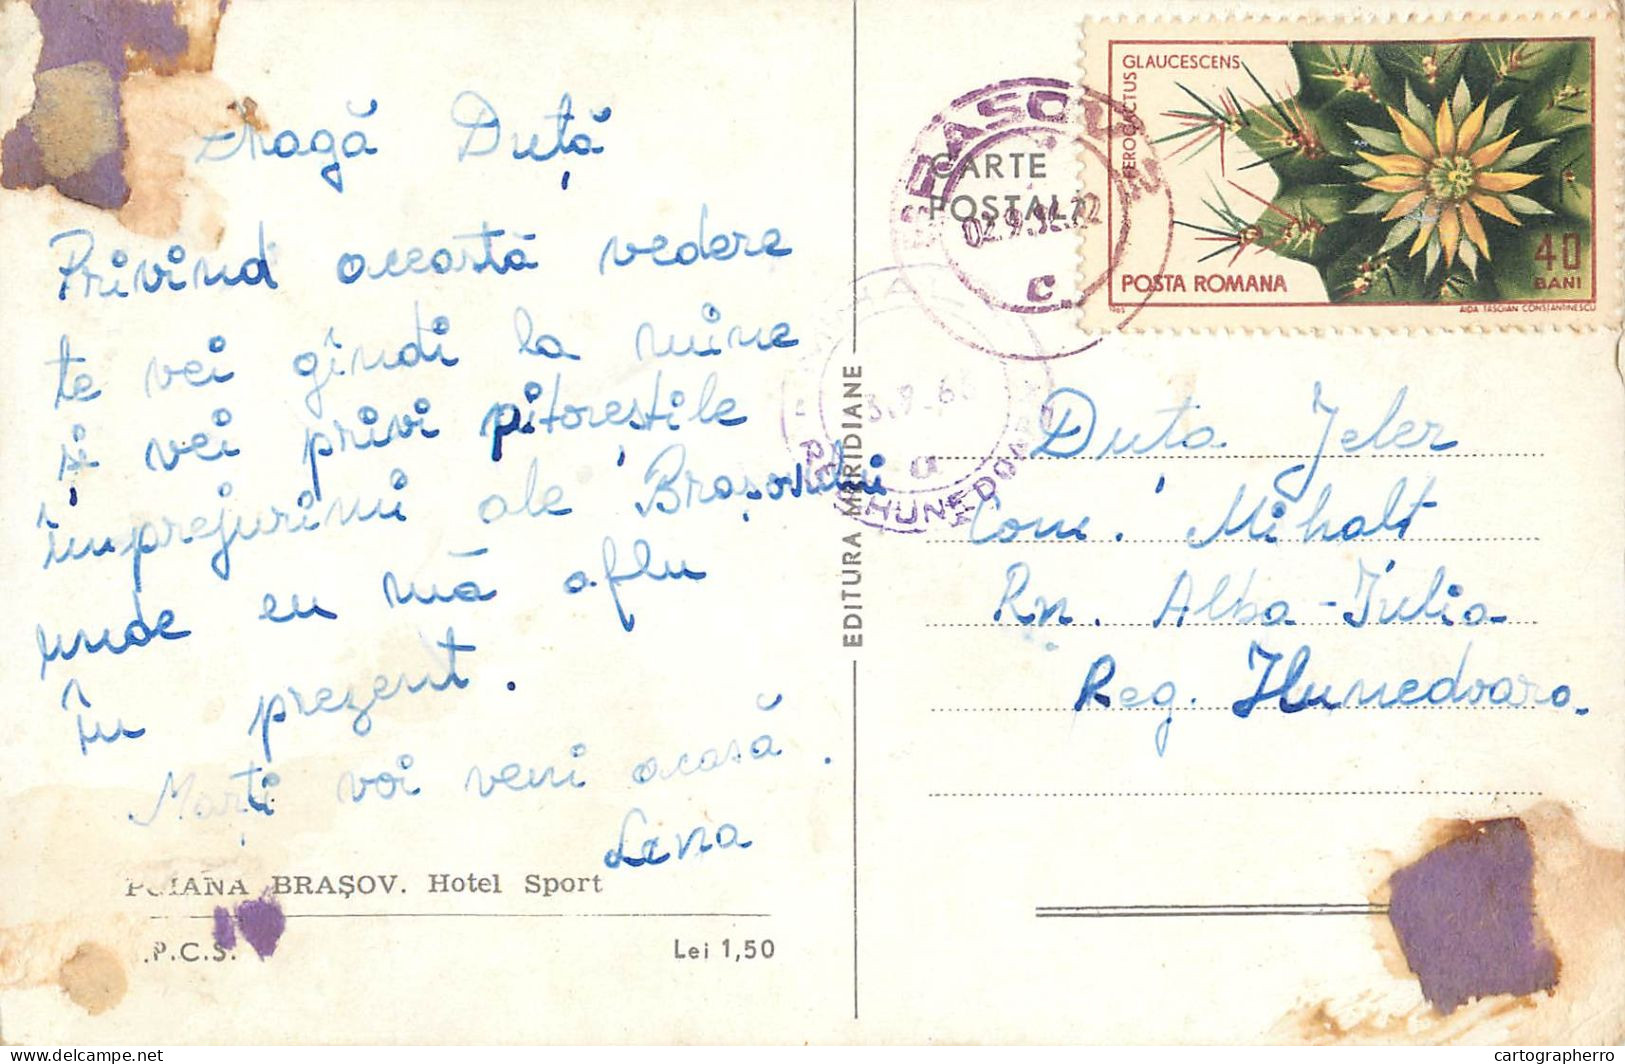 Dragă Duță
Privind această vedere
te vei gîndi la mine
și vei privi pitoreștile
împrejurimi ale Brașovului
unde eu mă aflu
în prezent.
Marți voi veni acasă.
Lena
POIANA BRAȘOV. Hotel Sport
.P.C.S.
Lei 1,50
EDITURA MERIDIANE
CARTE
POSTALĂ
BRASOV
c.
HUNEDOARA
a
FEROCACTUS
GLAUCESCENS
POSTA ROMANA
40
BANI
1965
AIDA TASGIAN CONSTANTINESCU
Duța Jeler
Com. Mihalț
Rn. Alba-Iulia
Reg. Hunedoara.
delcampe.net
cartographerro